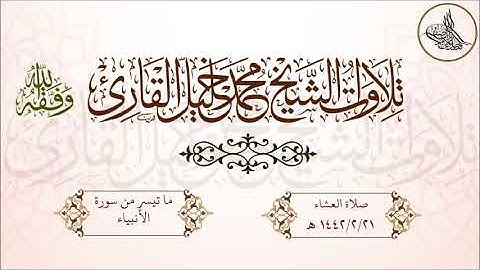 تلاوات الشيخ محمد خليل القارئ وفقه الله
صلاة العشاء
١٤٤٢/٢/٢١ هـ
ما تيسر من سورة
الأنبياء